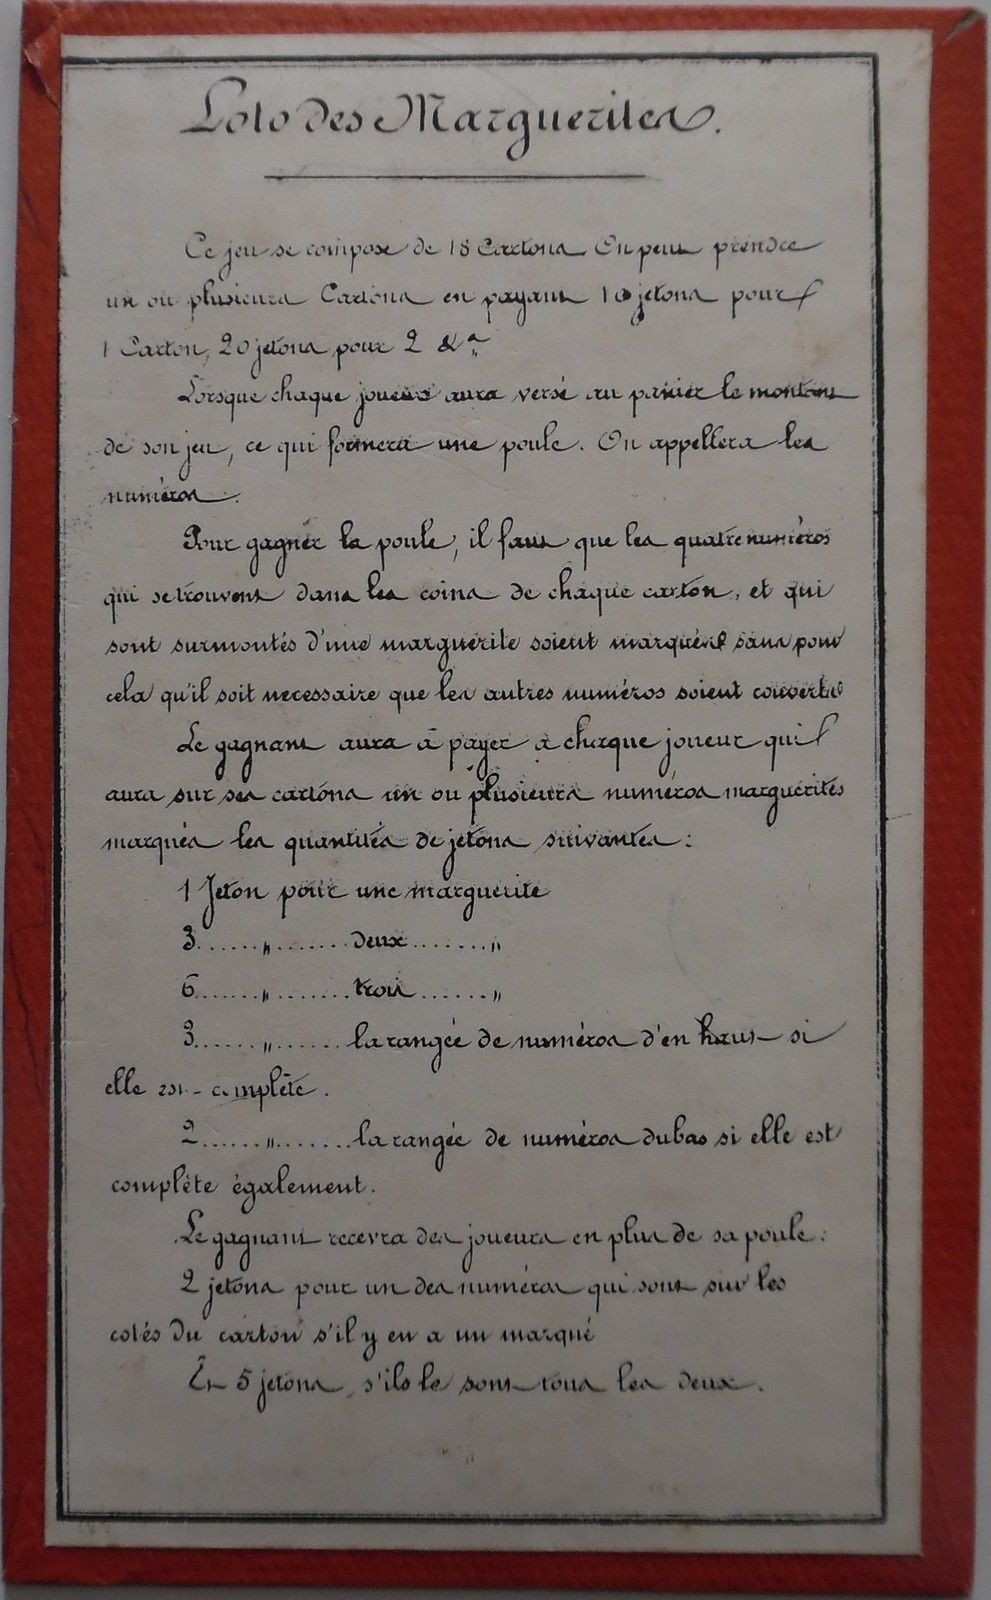 Loto des Marguerites.
Ce jeu se compose de 18 Cartons On peut prendre
un ou plusieurs Cartons en payant 10 jetons pour
1 Carton, 20 jetons pour 2 &a
Lorsque chaque joueur aura versé au panier le montant
de son jeu, ce qui formera une poule. On appellera les
numéros.
Pour gagner la poule, il faut que les quatre numéros
qui se trouvent dans les coins de chaque carton, et qui
sont surmontés d'une marguerite soient marqués sans pour
cela qu'il soit necessaire que les autres numéros soient couverts
Le gagnant aura à payer à chaque joueur qui
aura sur ses cartons un ou plusieurs numéros marguerites
marqués les quantités de jetons suivantes :
1 Jeton pour une marguerite
3......"........deux........"
6......"........trois......."
3......"....... la rangée de numéros d'en haut si
elle est complète.
2......".......la rangée de numéros du bas si elle est
complète également.
Le gagnant recevra des joueurs en plus de sa poule :
2 jetons pour un des numéros qui sont sur les
cotés du carton s'il y en a un marqué
Et 5 jetons, s'ils le sont tous les deux.